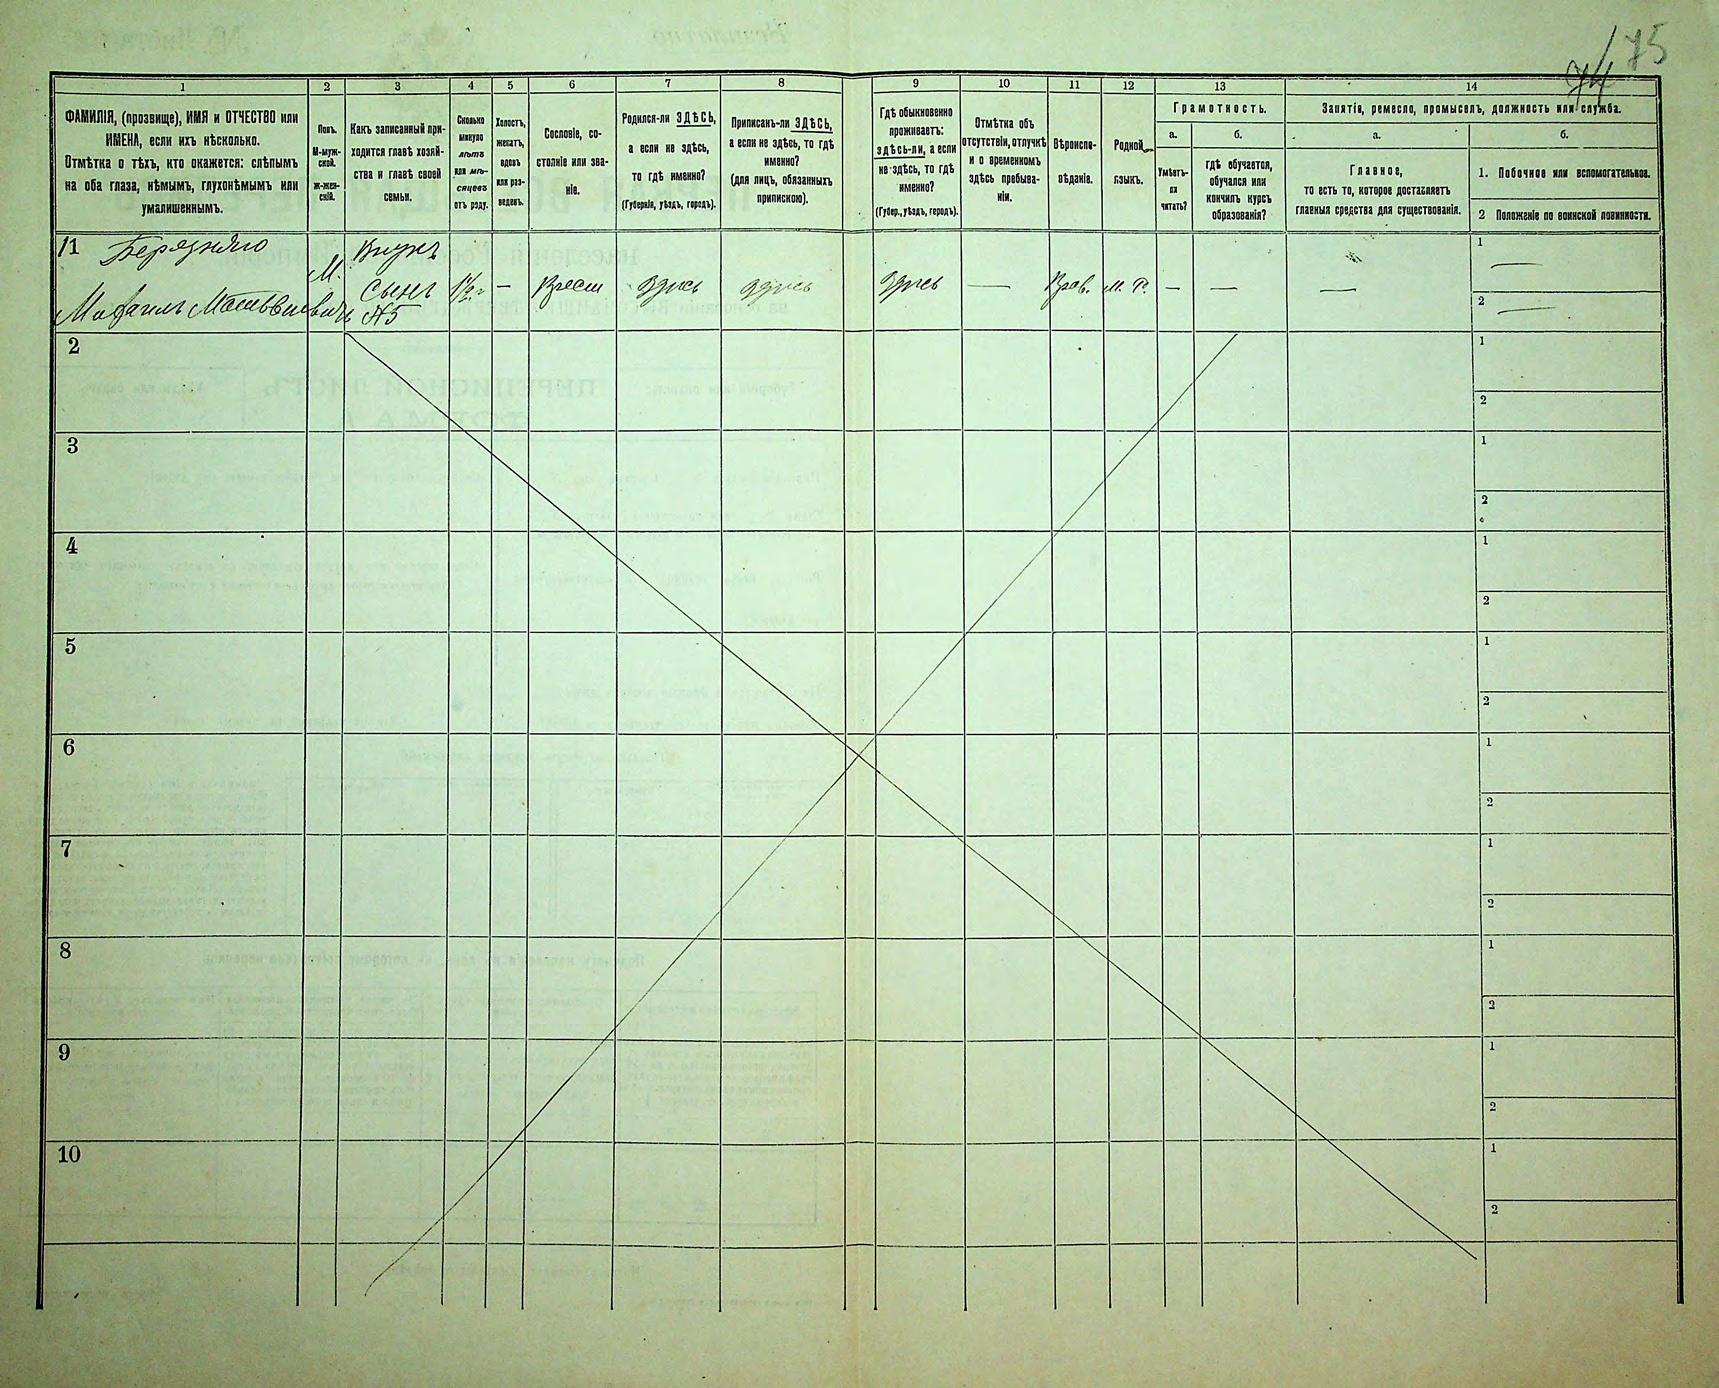 75
74
1
2
3
4
5
6
7
8
9
10
11
12
13
14
ФАМИЛІЯ, (прозвище), ИМЯ и ОТЧЕСТВО или
ИМЕНА, если ихъ нѣсколько.
Отмѣтка о тѣхъ, кто окажется: слѣпымъ
на оба глаза, нѣмымъ, глухонѣмымъ или
умалишеннымъ.
Полъ.
М-муж-
ской.
ж-жен-
скій.
Какъ записанный при-
ходится главѣ хозяй-
ства и главѣ своей
семьи.
Сколько
минуло
лѣтъ
или мѣ-
сяцевъ
отъ роду.
Холостъ,
женатъ,
вдовъ
или раз-
веденъ.
Сословіе, со-
стояніе или зва-
ніе.
Родился-ли ЗДѢСЬ,
а если не здѣсь,
то гдѣ именно?
(Губернія, уѣздъ, городъ).
Приписанъ-ли ЗДѢСЬ,
а если не здѣсь, то гдѣ
именно?
(для лицъ, обязанныхъ
припискою).
Гдѣ обыкновенно
проживаетъ:
здѣсь-ли, а если
не здѣсь, то гдѣ
именно?
(Губер., уѣздъ, городъ).
Отмѣтка объ
отсутствіи, отлучкѣ
и о временномъ
здѣсь пребыва-
ніи.
Вѣроиспо-
вѣданіе.
Родной
языкъ.
Грамотность.
а.
б.
Умѣетъ-
ли
читать?
гдѣ обучается,
обучался или
кончилъ курсъ
образованія?
Занятія, ремесло, промыселъ, должность или служба.
а.
б.
Главное,
то есть то, которое доставляетъ
главныя средства для существованія.
1. Побочное или вспомогательное.
2 Положеніе по воинской повинности.
11 Михаилъ Матвѣевичъ
М
Внукъ
сынъ
№5
здѣсь
здѣсь
здѣсь
— Прав. М. Р. — — —
1 —
2 —
2
1
2
3
1
2
4
1
2
5
1
2
6
1
2
7
1
2
8
1
2
9
1
2
10
1
2